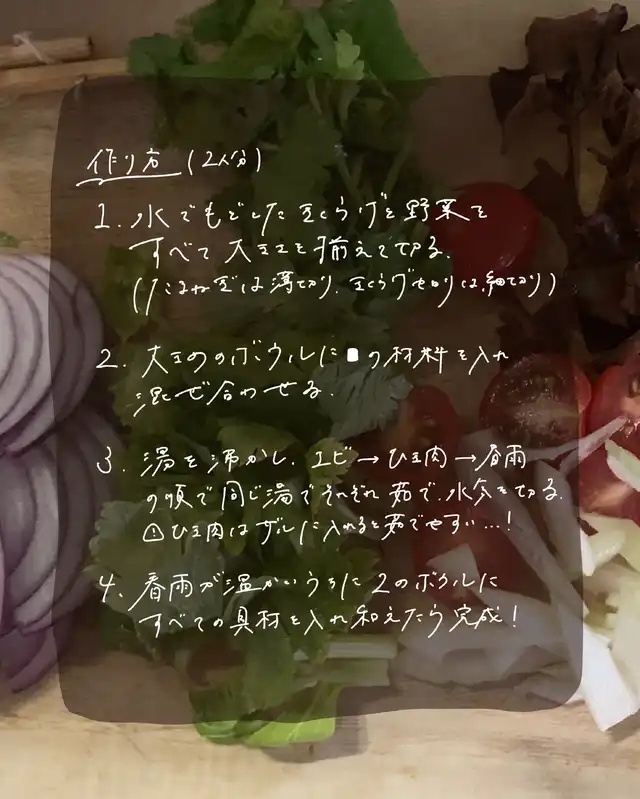 作り方 (2人分)
1. 水でもどしたきくらげと野菜を
すべて大きさを揃えて切る。
(たまねぎは薄切り、きくらげセロリは、細切り)
2. 大きめのボウルに■の材料を入れ
混ぜ合わせる。
3. 湯を沸かし、エビ→ひき肉→春雨
の順で同じ湯でそれぞれ茹で、水分を切る。
⚠ひき肉はザルに入れると茹でやすい…!
4. 春雨が温かいうちに2のボウルに
すべての具材を入れ和えたら完成!